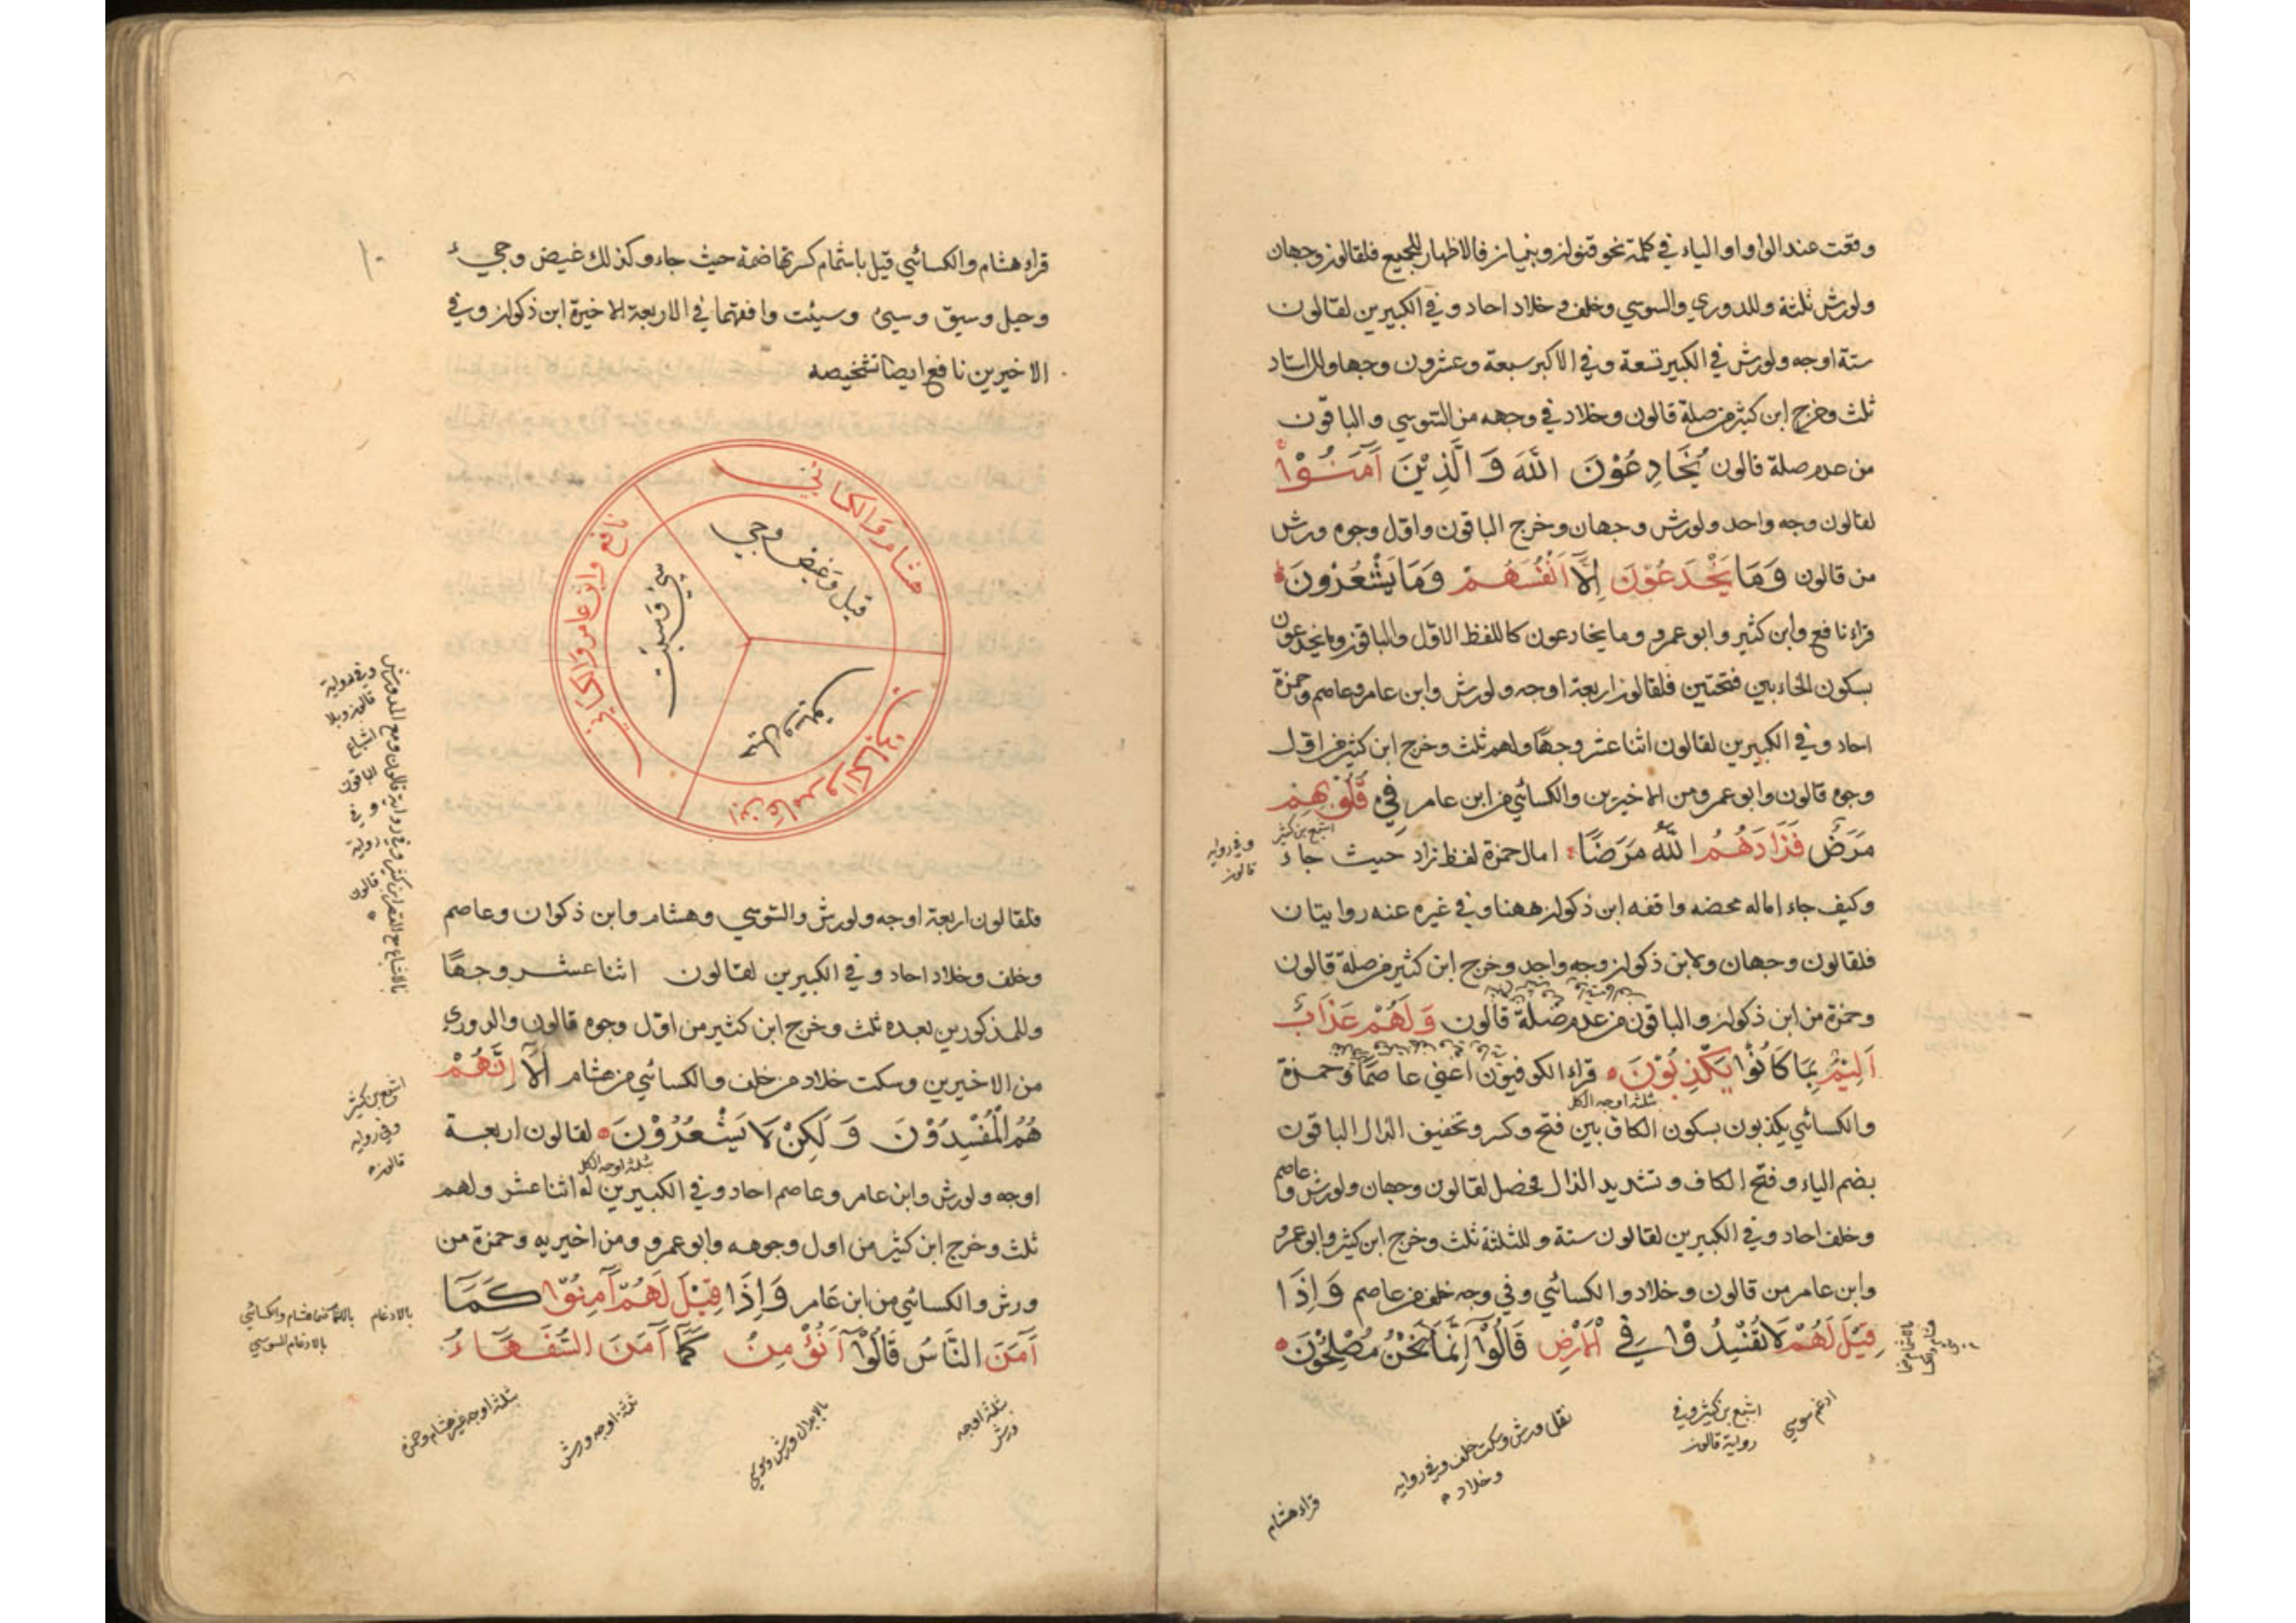 وقعت عند الواو او الياء في كلمة نحو قنوان وبنيان فالاظهار للجميع فلقالون وجهان
ولورش ثلثة وللدوري والسوسي وخلف وخلاد احاد وفي الكبيرين لقالون
ستة اوجه ولورش في الكبير تسعة وفي الاكبر سبعة وعشرون وجها
ثلث وخرج ابن كثير من صلة قالون وخلاد في وجهه من السوسي والباقون
من عدم صلة قالون يُخَادِعُوْنَ اللّٰهَ وَالَّذِيْنَ آمَنُوْا
لقالون وجه واحد ولورش وجهان وخرج الباقون واقل وجوه ورش
من قالون وَمَا يَخْدَعُوْنَ اِلَّا اَنْفُسَهُمْ وَمَا يَشْعُرُونَ
قراء نافع وابن كثير وابو عمرو وما يخادعون كاللفظ الاول والباقون وما يخدعون
بسكون الخاء بين فتحتين فلقالون اربعة اوجه ولورش وابن عامر وعاصم وحمزة
احاد وفي الكبيرين لقالون اثنا عشر وجها ولهم ثلث وخرج ابن كثير من اول
وجوه قالون وابو عمرو ومن الاخيرين والكسائي من ابن عامر فِي قُلُوْبِهِمْ
اشبع بن كثير
وفي رواية
قالون
مَرَضٌ فَزَادَهُمُ اللّٰهُ مَرَضًا امال حمزة لفظ زاد حيث جاء
وكيف جاء اماله محضه وافقه ابن ذكوان ههنا وفي غيره عنه روايتان
فلقالون وجهان ولابن ذكوان وجه واحد وخرج ابن كثير من صلة قالون
وحمزة من ابن ذكوان والباقون من عدم صلة قالون وَلَهُمْ عَذَابٌ
اَلِيْمٌ بِمَا كَانُوْا يَكْذِبُوْنَ قراء الكوفيون اعني عاصما وحمزة
ثلثه اوجه الكل
والكسائي يكذبون بسكون الكاف بين فتح وكسر وتخفيف الذال الباقون
بضم الياء وفتح الكاف وتشديد الذال فحصل لقالون وجهان ولورش وعاصم
وخلف احاد وفي الكبيرين لقالون ستة وللثلثة ثلث وخرج ابن كثير وابو عمرو
وابن عامر من قالون وخلاد والكسائي وفي وجه خلف من عاصم وَاِذَا
قِيْلَ لَهُمْ لَا تُفْسِدُوْا فِي الْاَرْضِ قَالُوْا اِنَّمَا نَحْنُ مُصْلِحُوْنَ
ادغم سوسي
اشبع بن كثير وفي
رواية قالون
نقل ورش وسكت خلف وفي رواية
وخلاد
قراء هشام
١٠
قراء هشام والكسائي قيل باشمام كسرتها ضمة حيث جاء وكذلك غيض وجيء
وحيل وسيق وسيئ وسيئت وافقهما في الاربعة الاخيرة ابن ذكوان وفي
الاخيرين نافع ايضا تشخيصه
هشام والكسائي
قيل وغيض وجي
نافع وابن عامر والكسائي
سيئ وسيئت
ابن عامر والكسائي
وفي رواية
قالون وبلا
اشباع
الباقون
و في
رواية
قالون
فلقالون اربعة اوجه ولورش والسوسي وهشام وابن ذكوان وعاصم
وخلف وخلاد احاد وفي الكبيرين لقالون اثنا عشر وجهًا
وللمذكورين بعده ثلث وخرج ابن كثير من اول وجوه قالون والدوري
من الاخيرين وسكت خلاد من خلف والكسائي من هشام اَلَا اِنَّهُمْ
اشبع بن كثير
وفي رواية
قالون
هُمُ الْمُفْسِدُوْنَ وَلٰكِنْ لَا يَشْعُرُوْنَ لقالون اربعة
ثلثه اوجه الكل
اوجه ولورش وابن عامر وعاصم احاد وفي الكبيرين له اثنا عشر ولهم
ثلث وخرج ابن كثير من اول وجوهه وابو عمرو ومن اخيريه وحمزة من
ورش والكسائي من ابن عامر وَاِذَا قِيْلَ لَهُمْ آمِنُوْا كَمَا
بالادغام
بالادغام السوسي
آمَنَ النَّاسُ قَالُوْا اَنُؤْمِنُ كَمَا آمَنَ السُّفَهَاءُ
ثلثه اوجه
ورش
بالابدال ورش وسوسي
ثلثه اوجه ورش
ثلثه اوجه غير هشام وحمزه